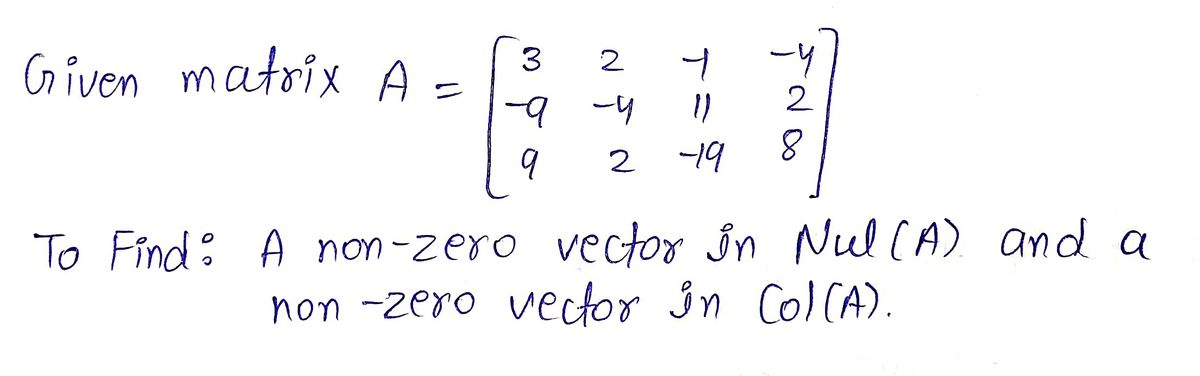 Given matrix A = [ 3 2 -1 -4
-9 -4 11 2
9 2 -19 8 ]
To Find: A non-zero vector in Nul(A) and a
non-zero vector in Col(A).